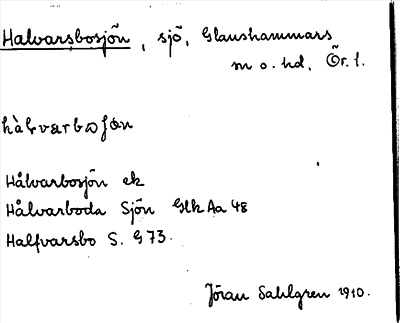 Halvarsbosjön, sjö, Glanshammars
m o. hd, Ör. l.
hàlvarboʃøn
Hålvarbosjön ek
Hålvarboda Sjön GlkAa 48
Halfvarsbo S. G 73.
Jöran Sahlgren 1910.